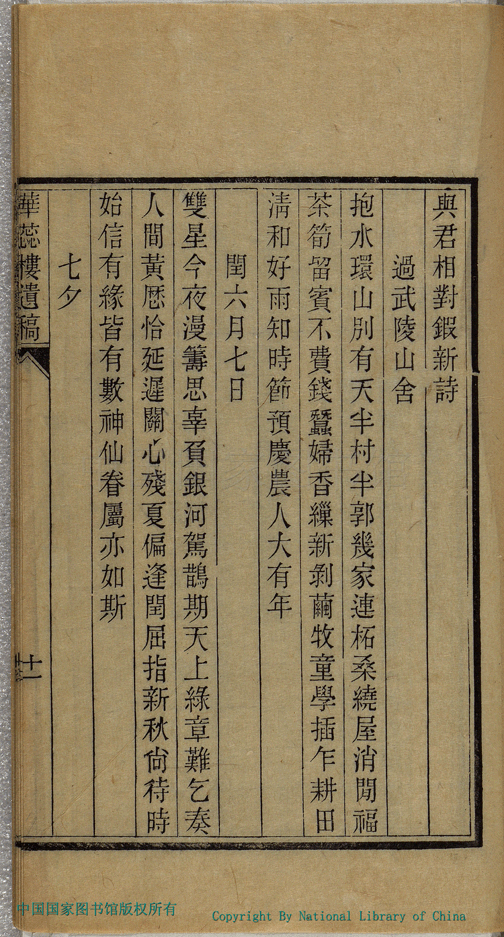 與君相對鍛新詩
過武陵山舍
抱水環山別有天半村半郭幾家連柘桑繞屋消閒福
茶筍留賓不費錢蠶婦香繅新剝繭牧童學插乍耕田
淸和好雨知時節預慶農人大有年
閏六月七日
雙星今夜漫籌思辜負銀河駕鵲期天上綠章難乞奏
人間黃歷恰延遲關心殘夏偏逢閏屈指新秋尙待時
始信有緣皆有數神仙眷屬亦如斯
七夕
華蕊樓遺稿
十一
中国国家图书馆版权所有
Copyright By National Library of China